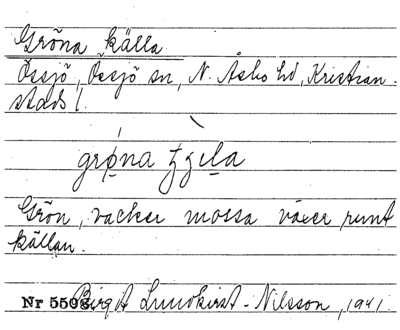 Gröna källa
Össjö, Össjö sn, N. Åsbo hd, Kristian-
stads l.
Grön, vacker mossa växer runt
källan.
Nr 5508. Birgit Lundkvist-Nilsson, 1941.